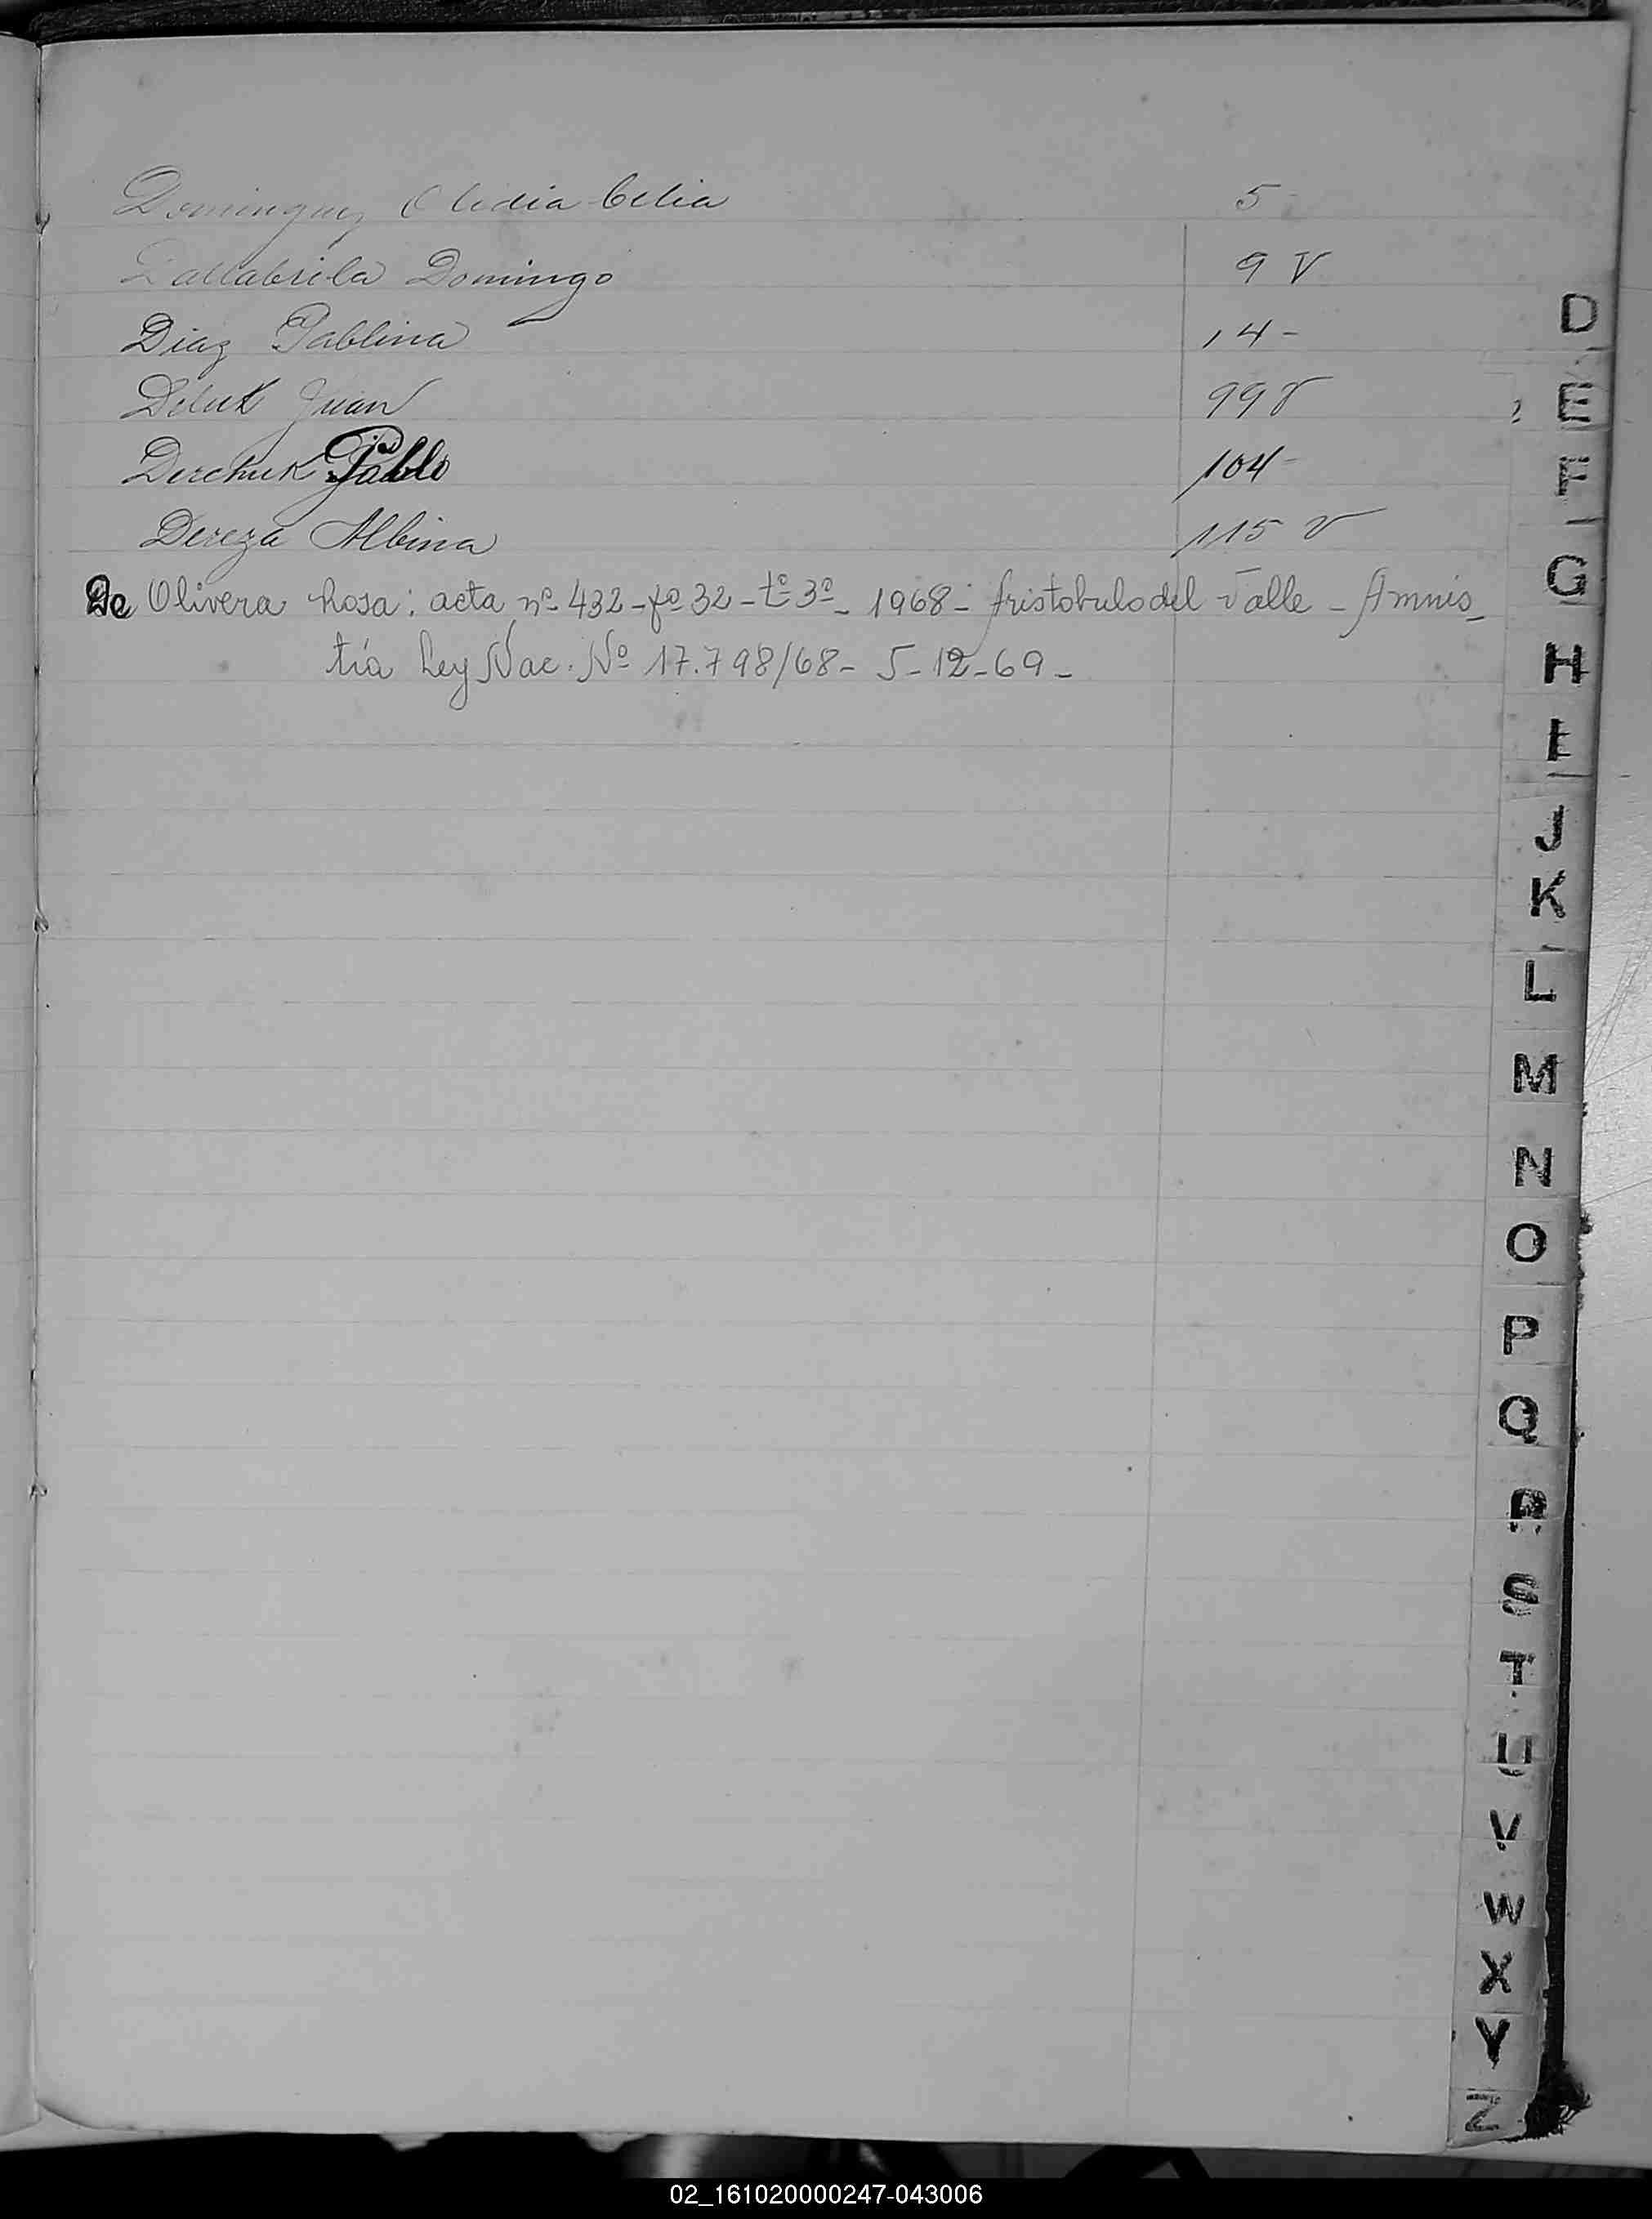 Dominguez Clidia Celia 5
Dallabrila Domingo 9 V
Diaz Pablina 14-
Deluk Juan 99 V
Derchuk Pablo 104-
Dereza Albina 115 V
De Olivera Rosa: acta nº 432-fº 32-tº 3º- 1968- Aristobulo del Valle - Amnis-
tía Ley Nac. Nº 17.798/68- 5-12-69-
D
E
F
G
H
I
J
K
L
M
N
O
P
Q
R
S
T
U
V
W
X
Y
Z
02_161020000247-043006